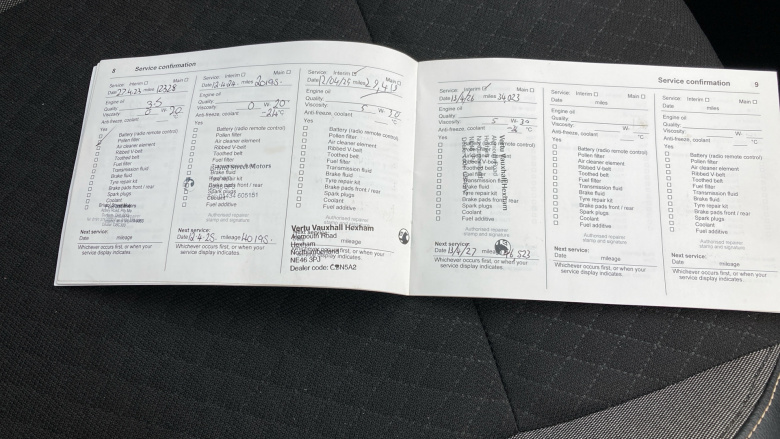 8 Service confirmation
Service: Interim Main
Date 27.4.23 miles 12328
Engine oil
Quality
Viscosity: 0 W- 20
Anti-freeze, coolant
Yes
Battery (radio remote control)
Pollen filter
Air cleaner element
Ribbed V-belt
Toothed belt
Fuel filter
Transmission fluid
Brake fluid
Tyre repair kit
Brake pads front / rear
Spark plugs
Coolant
Next service:
Date mileage
Whichever occurs first, or when your
service display indicates.
Service: Interim Main
Date 12.4.24. miles 20195.
Engine oil
Quality:
Viscosity: 0 W- 20
Anti-freeze, coolant -24°C
Yes
Battery (radio remote control)
Pollen filter
Air cleaner element
Ribbed V-belt
Toothed belt
Fuel filter
Brake fluid
Spark plugs
Fuel additive
Authorised repairer
stamp and signature
Next service:
Date 12.4.25. mileage 40195.
Whichever occurs first, or when your
service display indicates.
Service: Interim Main
Engine oil
Quality:
Viscosity: 5
Anti-freeze, coolant °C
Yes
Battery (radio remote control)
Pollen filter
Air cleaner element
Ribbed V-belt
Toothed belt
Fuel filter
Transmission fluid
Brake fluid
Tyre repair kit
Brake pads front / rear
Spark plugs
Coolant
Fuel additive
Authorised repairer
stamp and signature
Vertu Vauxhall Hexham
Alemouth Road
Hexham
Northumberland
NE46 3PJ
Dealer code: C9N5A2
mileage
Service confirmation 9
Service: Interim Main
Date 13/4/26 miles 34,023
Engine oil
Quality:
Viscosity: 5 W- 30
Anti-freeze, coolant °C
Yes
Vertu Vauxhall Hexham
Brake fluid
Tyre repair kit
Brake pads front / rear
Spark plugs
Coolant
Fuel additive
Authorised repairer
stamp and signature
Next service:
Date 13/4/27
Whichever occurs first, or when your
service display indicates.
Service: Interim Main
Date miles
Engine oil
Quality:
Viscosity: W-
Anti-freeze, coolant °C
Yes
Battery (radio remote control)
Pollen filter
Air cleaner element
Ribbed V-belt
Toothed belt
Fuel filter
Transmission fluid
Brake fluid
Tyre repair kit
Brake pads front / rear
Spark plugs
Coolant
Fuel additive
Authorised repairer
stamp and signature
Next service:
Date mileage
Whichever occurs first, or when your
service display indicates.
Service: Interim Main
Date miles
Engine oil
Quality:
Viscosity: W-
Anti-freeze, coolant °C
Yes
Battery (radio remote control)
Pollen filter
Air cleaner element
Ribbed V-belt
Toothed belt
Fuel filter
Transmission fluid
Brake fluid
Tyre repair kit
Brake pads front / rear
Spark plugs
Coolant
Fuel additive
Authorised repairer
stamp and signature
Next service:
Date mileage
Whichever occurs first, or when your
service display indicates.